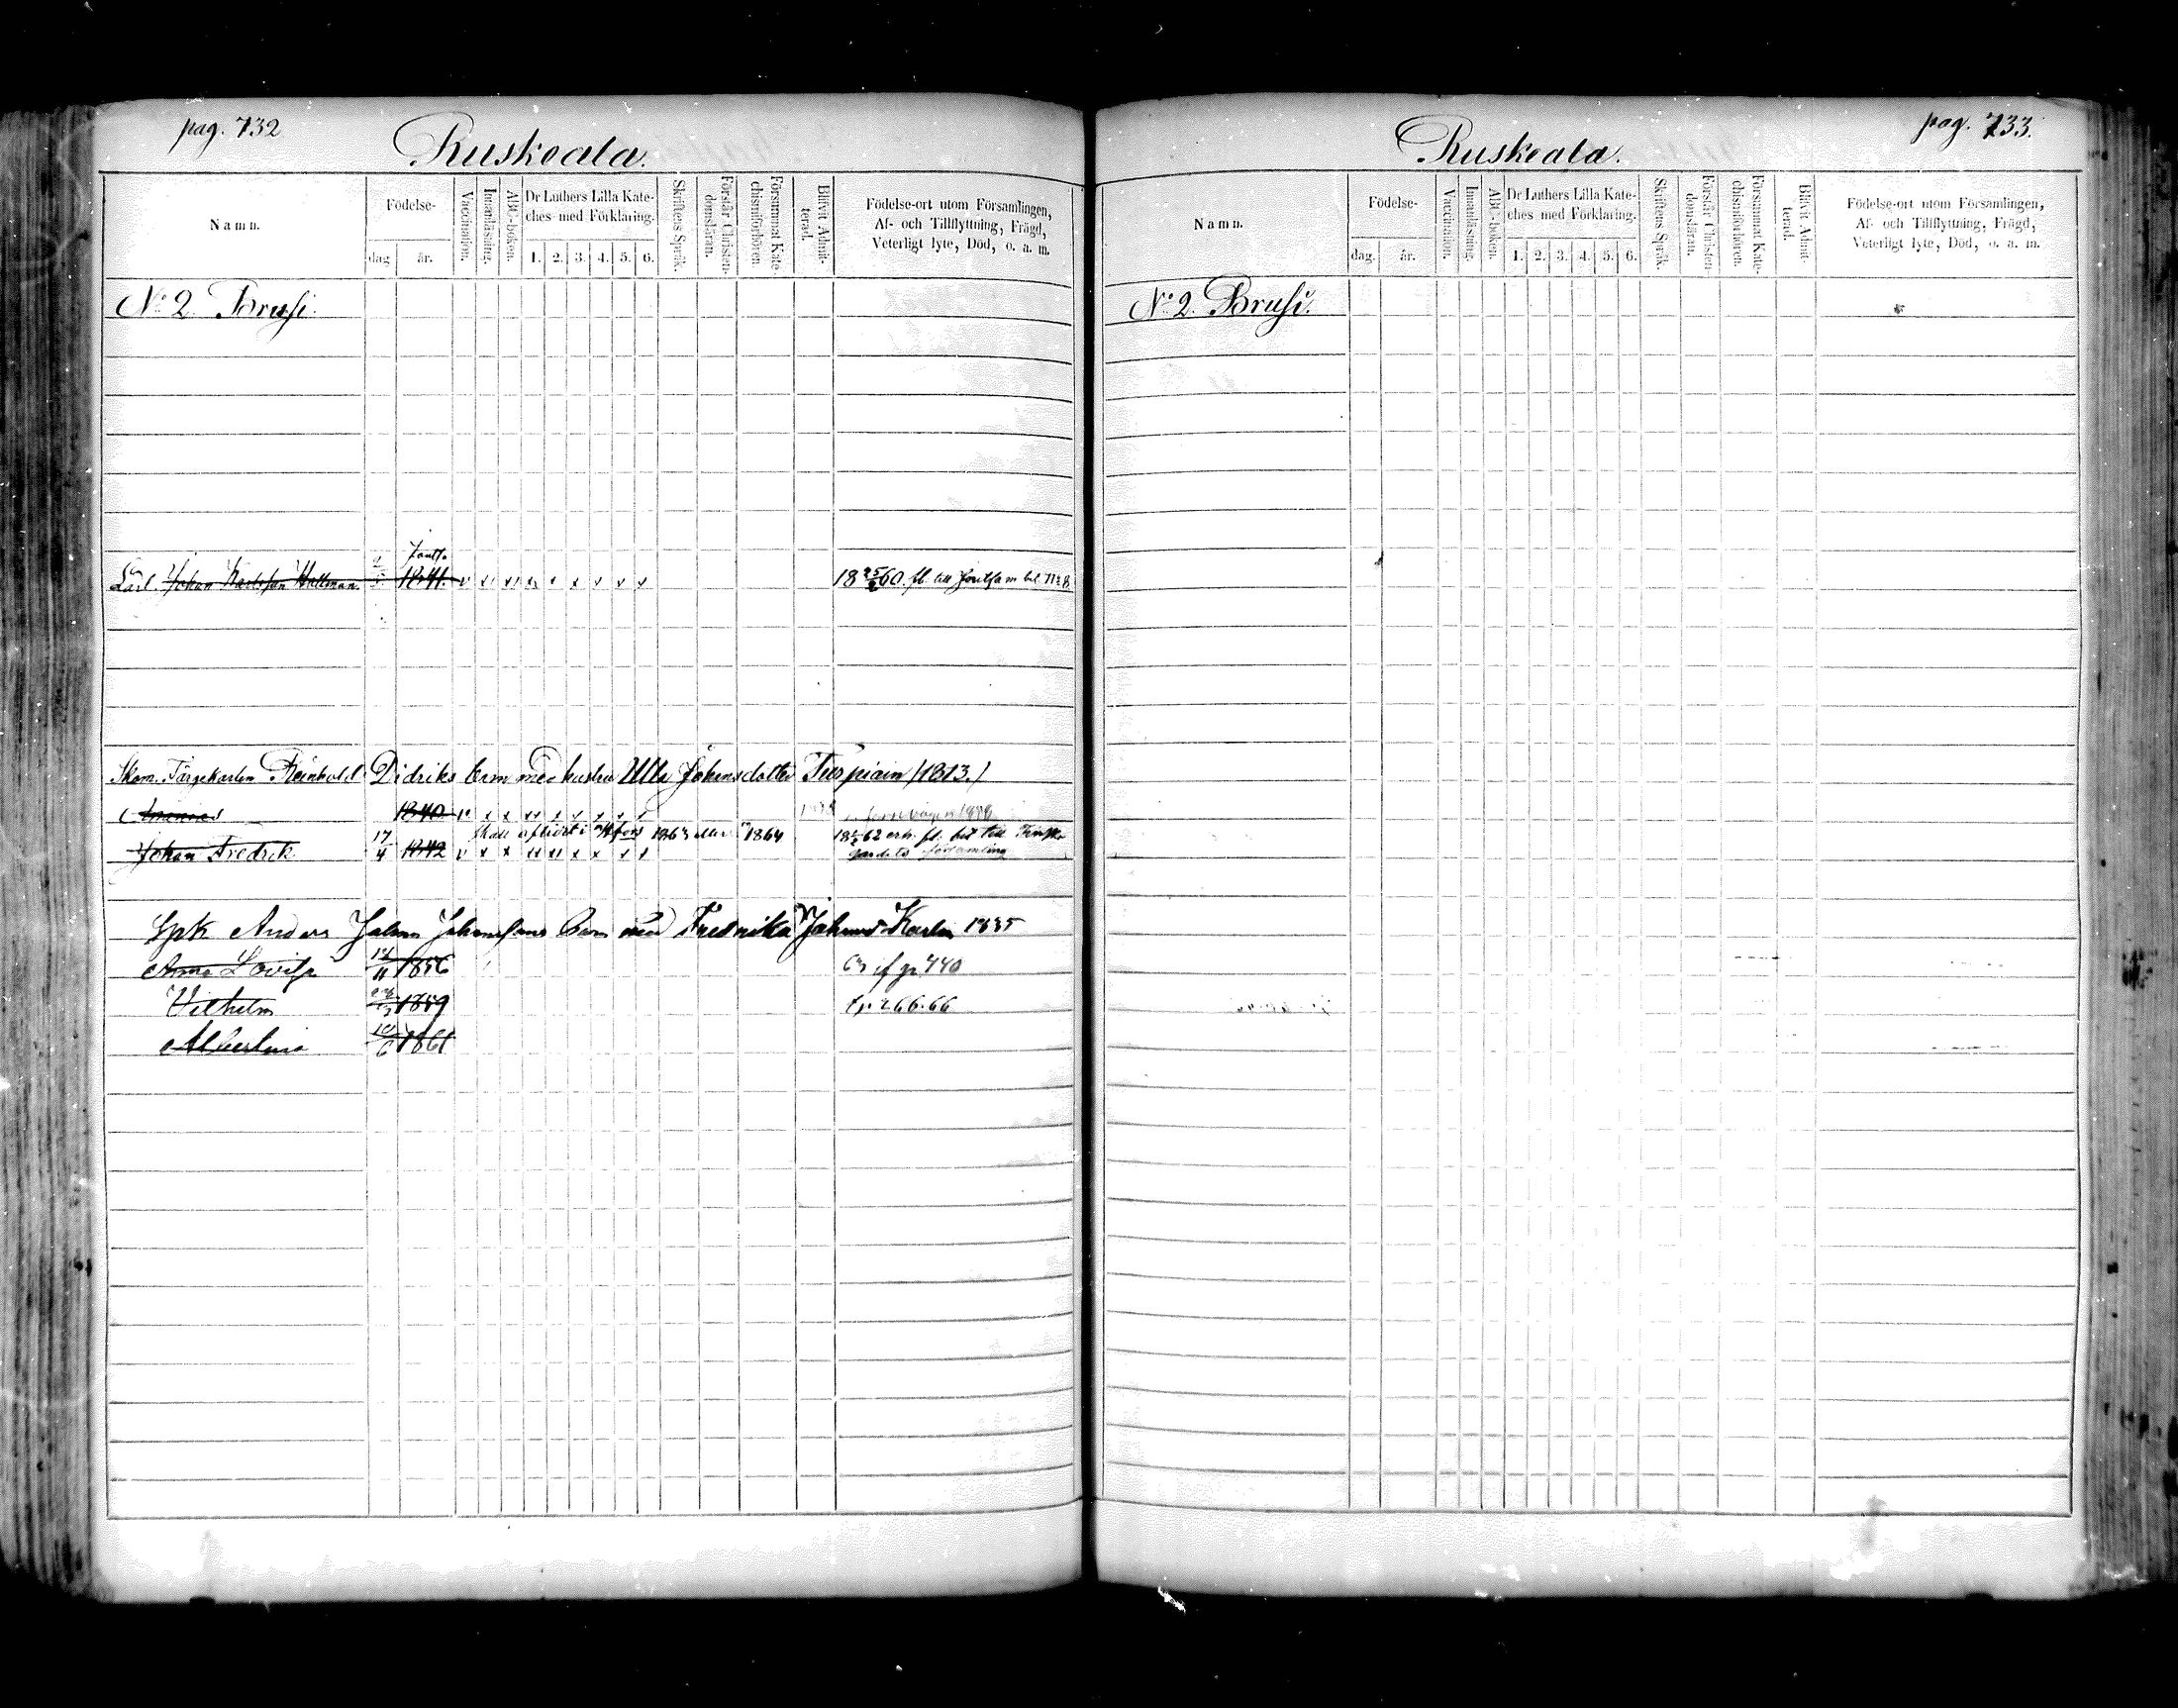 pag. 732
Ruskeala.
Namn.
Födelse-
dag
år.
Vaccination.
Innanläsning.
ABC-boken.
Dr Luthers Lilla Kate-
ches med Förklaring.
1. 2. 3. 4. 5. 6.
Skriftens Språk.
Förstår Christen-
domsläran.
Försummat Kate-
chismiförhören.
Blifvit Admit-
terad.
Födelse-ort utom Församlingen,
Af- och Tillflyttning, Frägd,
Veterligt lyte, Död, o. a. m.
No 2 Brusi.
Lärl. Johan Karlsson Hallman. 1841. 18 25/ 60. fl. till
Skom. Färgekarlen Reinhold Didriks barn med hustru Ulla Johansdotter (1813.)
Ananias 1840
skall i H:fors 1863 eller 1864
Johan Fredrik 17/4 1842 1862 erh. fl. bet till Finska
Gardets församling
Spk Anders Johan Johanssons barn med Fredrika Johansd. 1835
Anna Lovisa 1856 440
Vilhelm 1859 266.66
Albertina 10/6 1861
pag. 733.
Ruskeala.
Namn.
Födelse-
dag.
år.
Vaccination.
Innanläsning.
ABC-boken.
Dr Luthers Lilla Kate-
ches med Förklaring.
1. 2. 3. 4. 5. 6.
Skriftens Språk.
Förstår Christen-
domsläran.
Försummat Kate-
chismiförhören.
Blifvit Admit-
terad.
Födelse-ort utom Församlingen,
Af- och Tillflyttning, Frägd,
Veterligt lyte, Död, o. a. m.
No 2. Brusi.